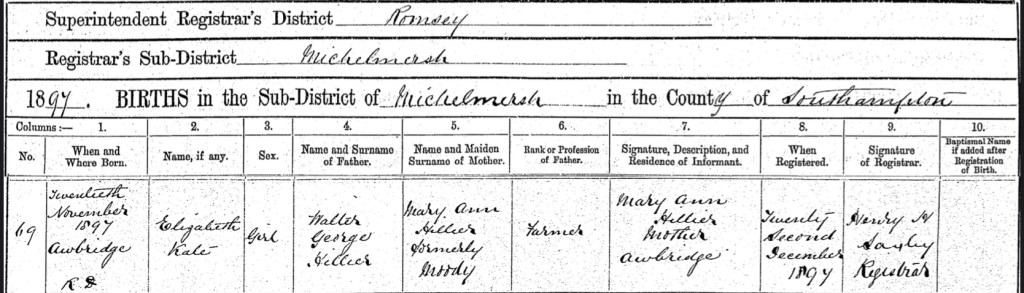 Superintendent Registrar's District Romsey
Registrar's Sub-District Michelmersh
1897. BIRTHS in the Sub-District of Michelmersh in the County of Southampton
Columns:— 1. 2. 3. 4. 5. 6. 7. 8. 9. 10.
No. When and Where Born. Name, if any. Sex. Name and Surname of Father. Name and Maiden Surname of Mother. Rank or Profession of Father. Signature, Description, and Residence of Informant. When Registered. Signature of Registrar. Baptismal Name if added after Registration of Birth.
69
Twentieth
November
1897
Awbridge
R D
Elizabeth
Kate
Girl
Walter
George
Hillier
Mary Ann
Hillier
formerly
Moody
Farmer
Mary Ann
Hillier
Mother
Awbridge
Twenty
Second
December
1897
Henry
Registrar